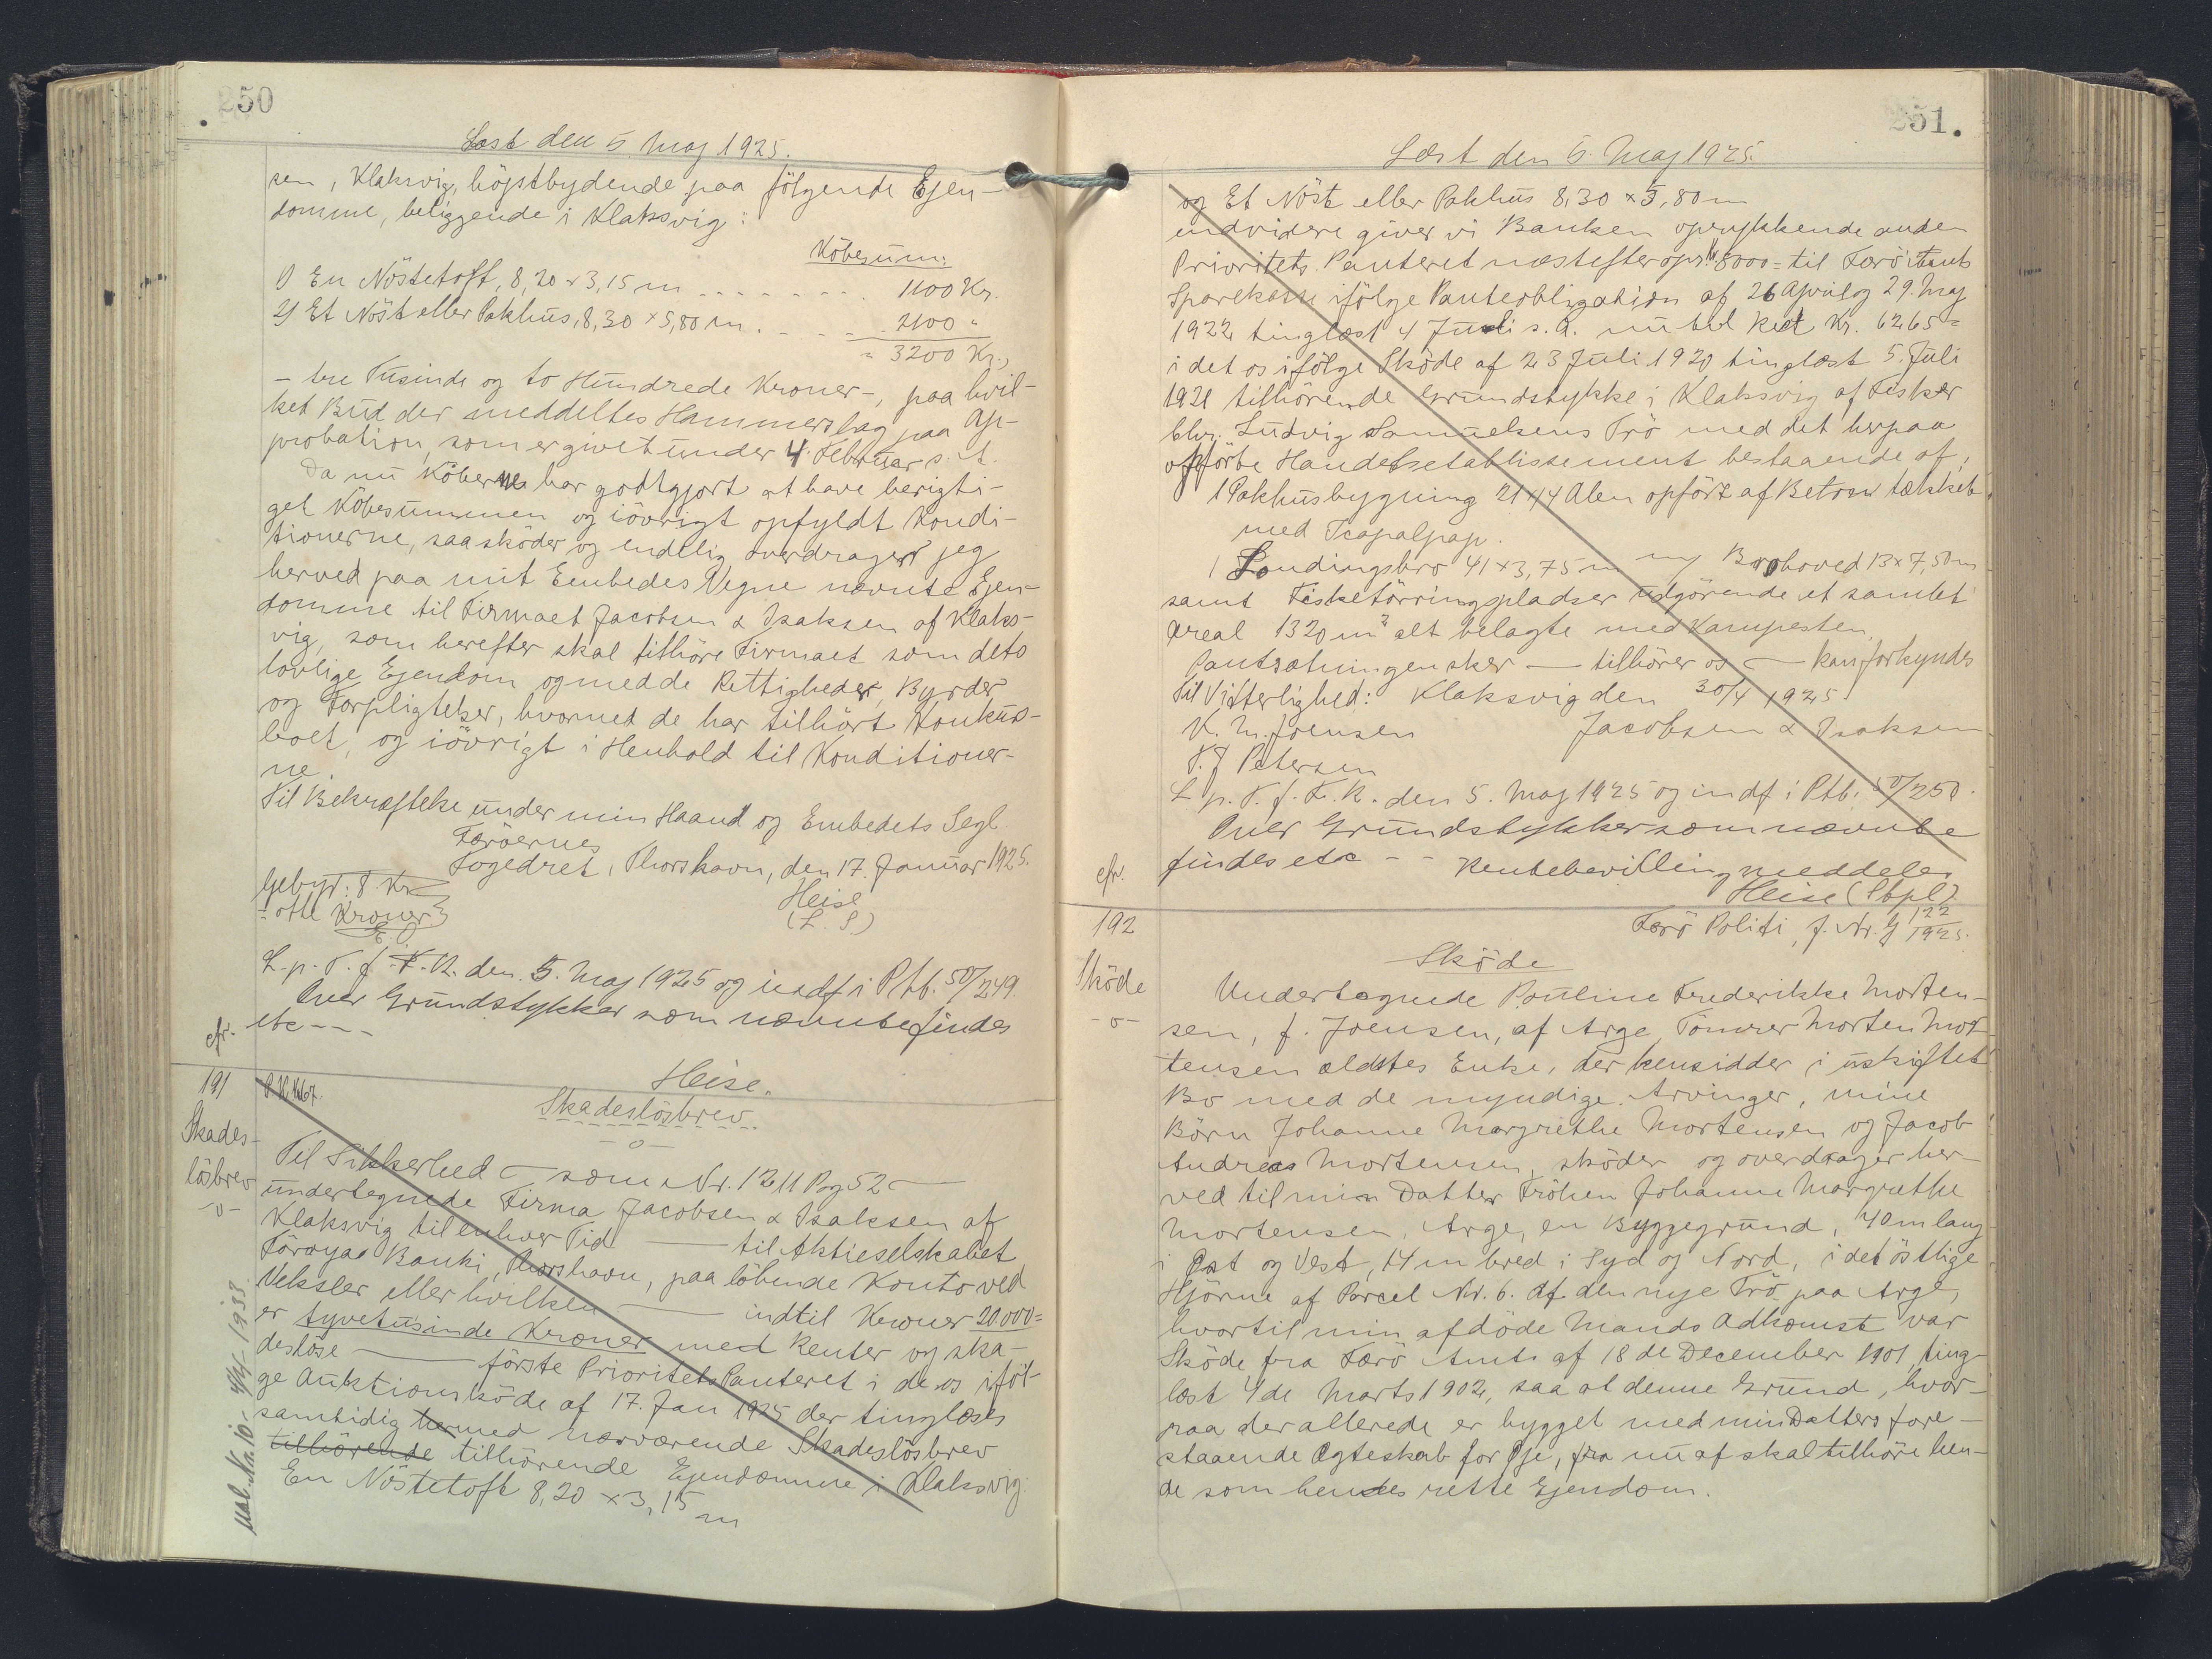 250
Læst den 5. Maj 1925.
sen, Klaksvig, höjstbydende paa fölgende Ejen-
domme, beliggende i Klaksvig:
Köbesum:
1) En Nöstetoft, 8,20 x 3,15 m - - - - - - - 1100 Kr.
2) Et Nöst eller Pakhus, 8,30 x 5,80 m. - - - 2100 "
= 3200 Kr.,
- tre Tusinde og to Hundrede Kroner -, paa hvil-
ket Bud der meddeltes Hammerslag paa Ap-
probation, som er givet under 4. Februar s. A.
Da nu Köberne har godtgjort at have berigti-
get Köbesummen og iövrigt opfyldt Kondi-
tionerne, saa sköder og endelig overdrager jeg
herved paa mit Embedes Vegne nævnte Ejen-
domme til Firmaet Jacobsen & Isaksen af Klaks-
vig, som herefter skal tilhöre Firmaet som dets
lovlige Ejendom og med de Rettigheder, Byrder
og Forpligtelser, hvormed de har tilhört Konkurs-
boet, og iövrigt i Henhold til Konditioner-
ne.
Til Bekræftelse under min Haand og Embedets Segl
Færöernes
Fogedret, Thorshavn, den 17. Januar 1925.
Gebyr: 8 Kr.
Heise
= otte Kroner
(L. S.)
L. p. T. f. F. R. den 5. Maj 1925 og indf i Ptb. 50/249.
Over Grundstykker som nævnte findes
cfr. etc - - -
Heise.
191
Skadeslösbrev.
-o-
Skades-
lösbrev
-o-
Til Sikkerhed — som Nr. 1211 Pg 52 —
undertegnede Firma Jacobsen & Isaksen af
Klaksvig til enhver Tid — til Aktieselskabet
Föroya Banki, Thorshavn, paa löbende Konto ved
Veksler eller hvilken — indtil Kroner 20.000=
er tyvetusinde Kroner med Renter og ska-
deslöse — förste Prioritets Panteret i de os iföl-
ge Auktionsköde af 17. Jan 1925 der tinglæses
samtidig hermed nærværende Skadeslösbrev
tilhörende tilhörende Ejendomme i Klaksvig:
En Nöstetoft 8,20 x 3,15 m
251.
Læst den 5. Maj 1925.
og Et Nöst eller Pakhus 8,30 x 5,80 m
endvidere giver vi Banken oprykkende anden
Prioritets Panteret næstefter opr. Kr. 8000= til Færö Amts
Sparekasse ifölge Panteobligation af 26 April og 29. Maj
1922 tinglæst 4 Juli s. A. nu Kr. 6265=
i det os ifölge Sköde af 23 Juli 1920 tinglæst 5. Juli
1921 tilhörende Grundstykke i Klaksvig af Fisker
Ludvig Samuelsens Trö med det herpaa
opförte Handelsetablissement bestaaende af,
1 Pakhusbygning 21 x 14 Alen opfört af Beton tækket
med
1 Landingsbro 41 x 3,75 m og Brohoved 13 x 7,50 m
samt Fisketörringspladser udgörende et samlet
Areal 1320 m² alt belagte med Kampesten.
Pantsætningen sker — tilhörer os — kan forkyndes
Til Vitterlighed: Klaksvig den 30/4 1925
K. M. Joensen Jacobsen & Isaksen
T. J. Petersen
L. p. T. f. F. R. den 5. Maj 1925 og indf i Ptb. 50/250.
Over Grundstykker som nævnte
cfr. findes etc - - Rentebevilling meddeles
Heise (Stpl)
192
Færö Politi, J. Nr. G 122/1925.
Sköde
Sköde
-o-
Undertegnede Pouline Frederikke Morten-
sen, f. Joensen, af Arge Tömrer Morten Mor-
tensen ældstes Enke, der hensidder i uskiftet
Bo med de myndige Arvinger, mine
Börn Johanne Margrethe Mortensen og Jacob
Andreas Mortensen, sköder og overdrager her-
ved til min Datter Fröken Johanne Margrethe
Mortensen, Arge, en Byggegrund, 40 m lang
i Öst og Vest, 14 m bred i Syd og Nord, i det östlige
Hjörne af Parcel Nr. 6. af den nye Trö paa Arge,
hvortil min afdöde Mands Adkomst var
Sköde fra Færö Amt af 18 de December 1901, ting-
læst 4 de Marts 1902, saa at denne Grund, hvor-
paa der allerede er bygget med min Datters fore-
staaende Ægteskab for Öje, fra nu af skal tilhöre hen-
de som hendes rette Ejendom.